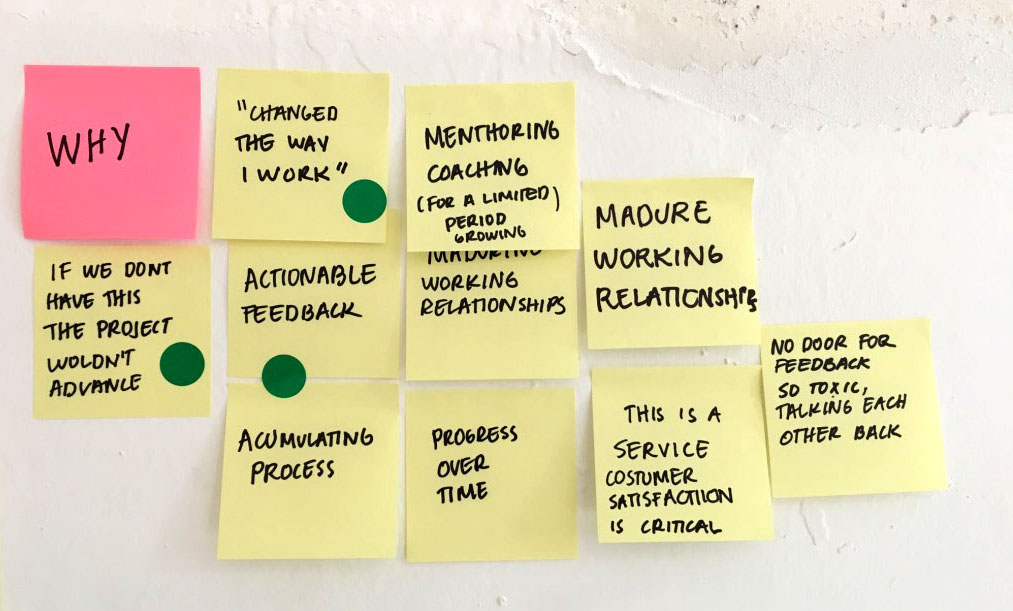 WHY
"CHANGED
THE WAY
I WORK"
MENTHORING
COACHING
(FOR A LIMITED)
PERIOD
GROWING
MADURE
WORKING
RELATIONSHIPS
IF WE DONT
HAVE THIS
THE PROJECT
WOLDN'T
ADVANCE
ACTIONABLE
FEEDBACK
WORKING
RELATIONSHIPS
NO DOOR FOR
FEEDBACK
SO TOXIC,
TALKING EACH
OTHER BACK
ACUMULATING
PROCESS
PROGRESS
OVER
TIME
THIS IS A
SERVICE
COSTUMER
SATISFACTION
IS CRITICAL